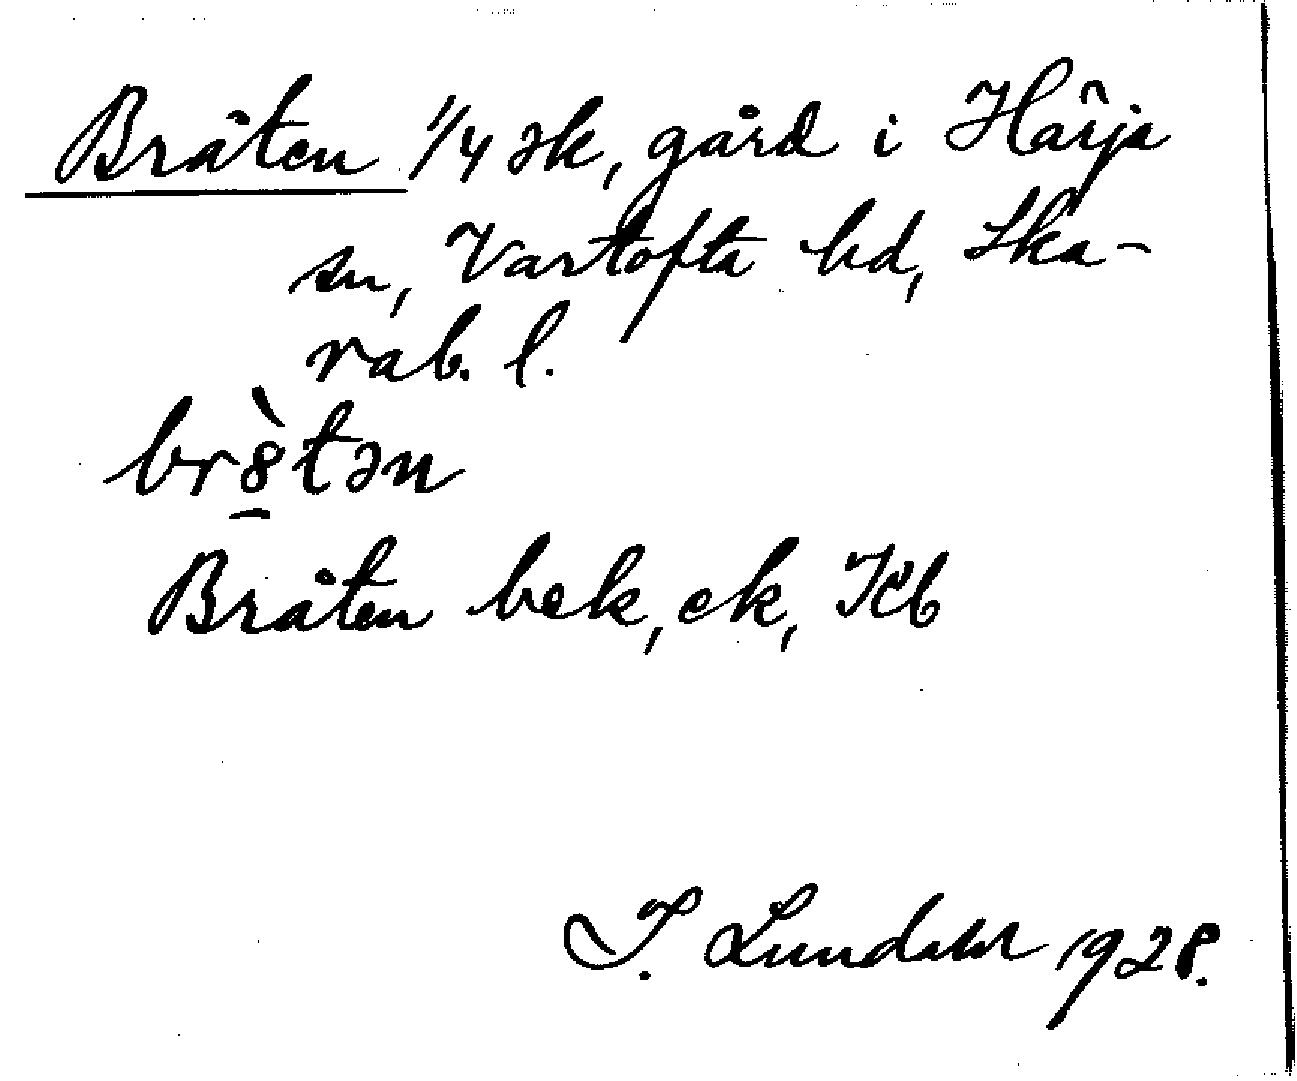 Bråten 1/4 sk, gård i Härja
sn, Vartofta hd, Ska-
rab. l.
br8̀tən
Bråten bek, ek, Kb
I. Lundahl 1928.